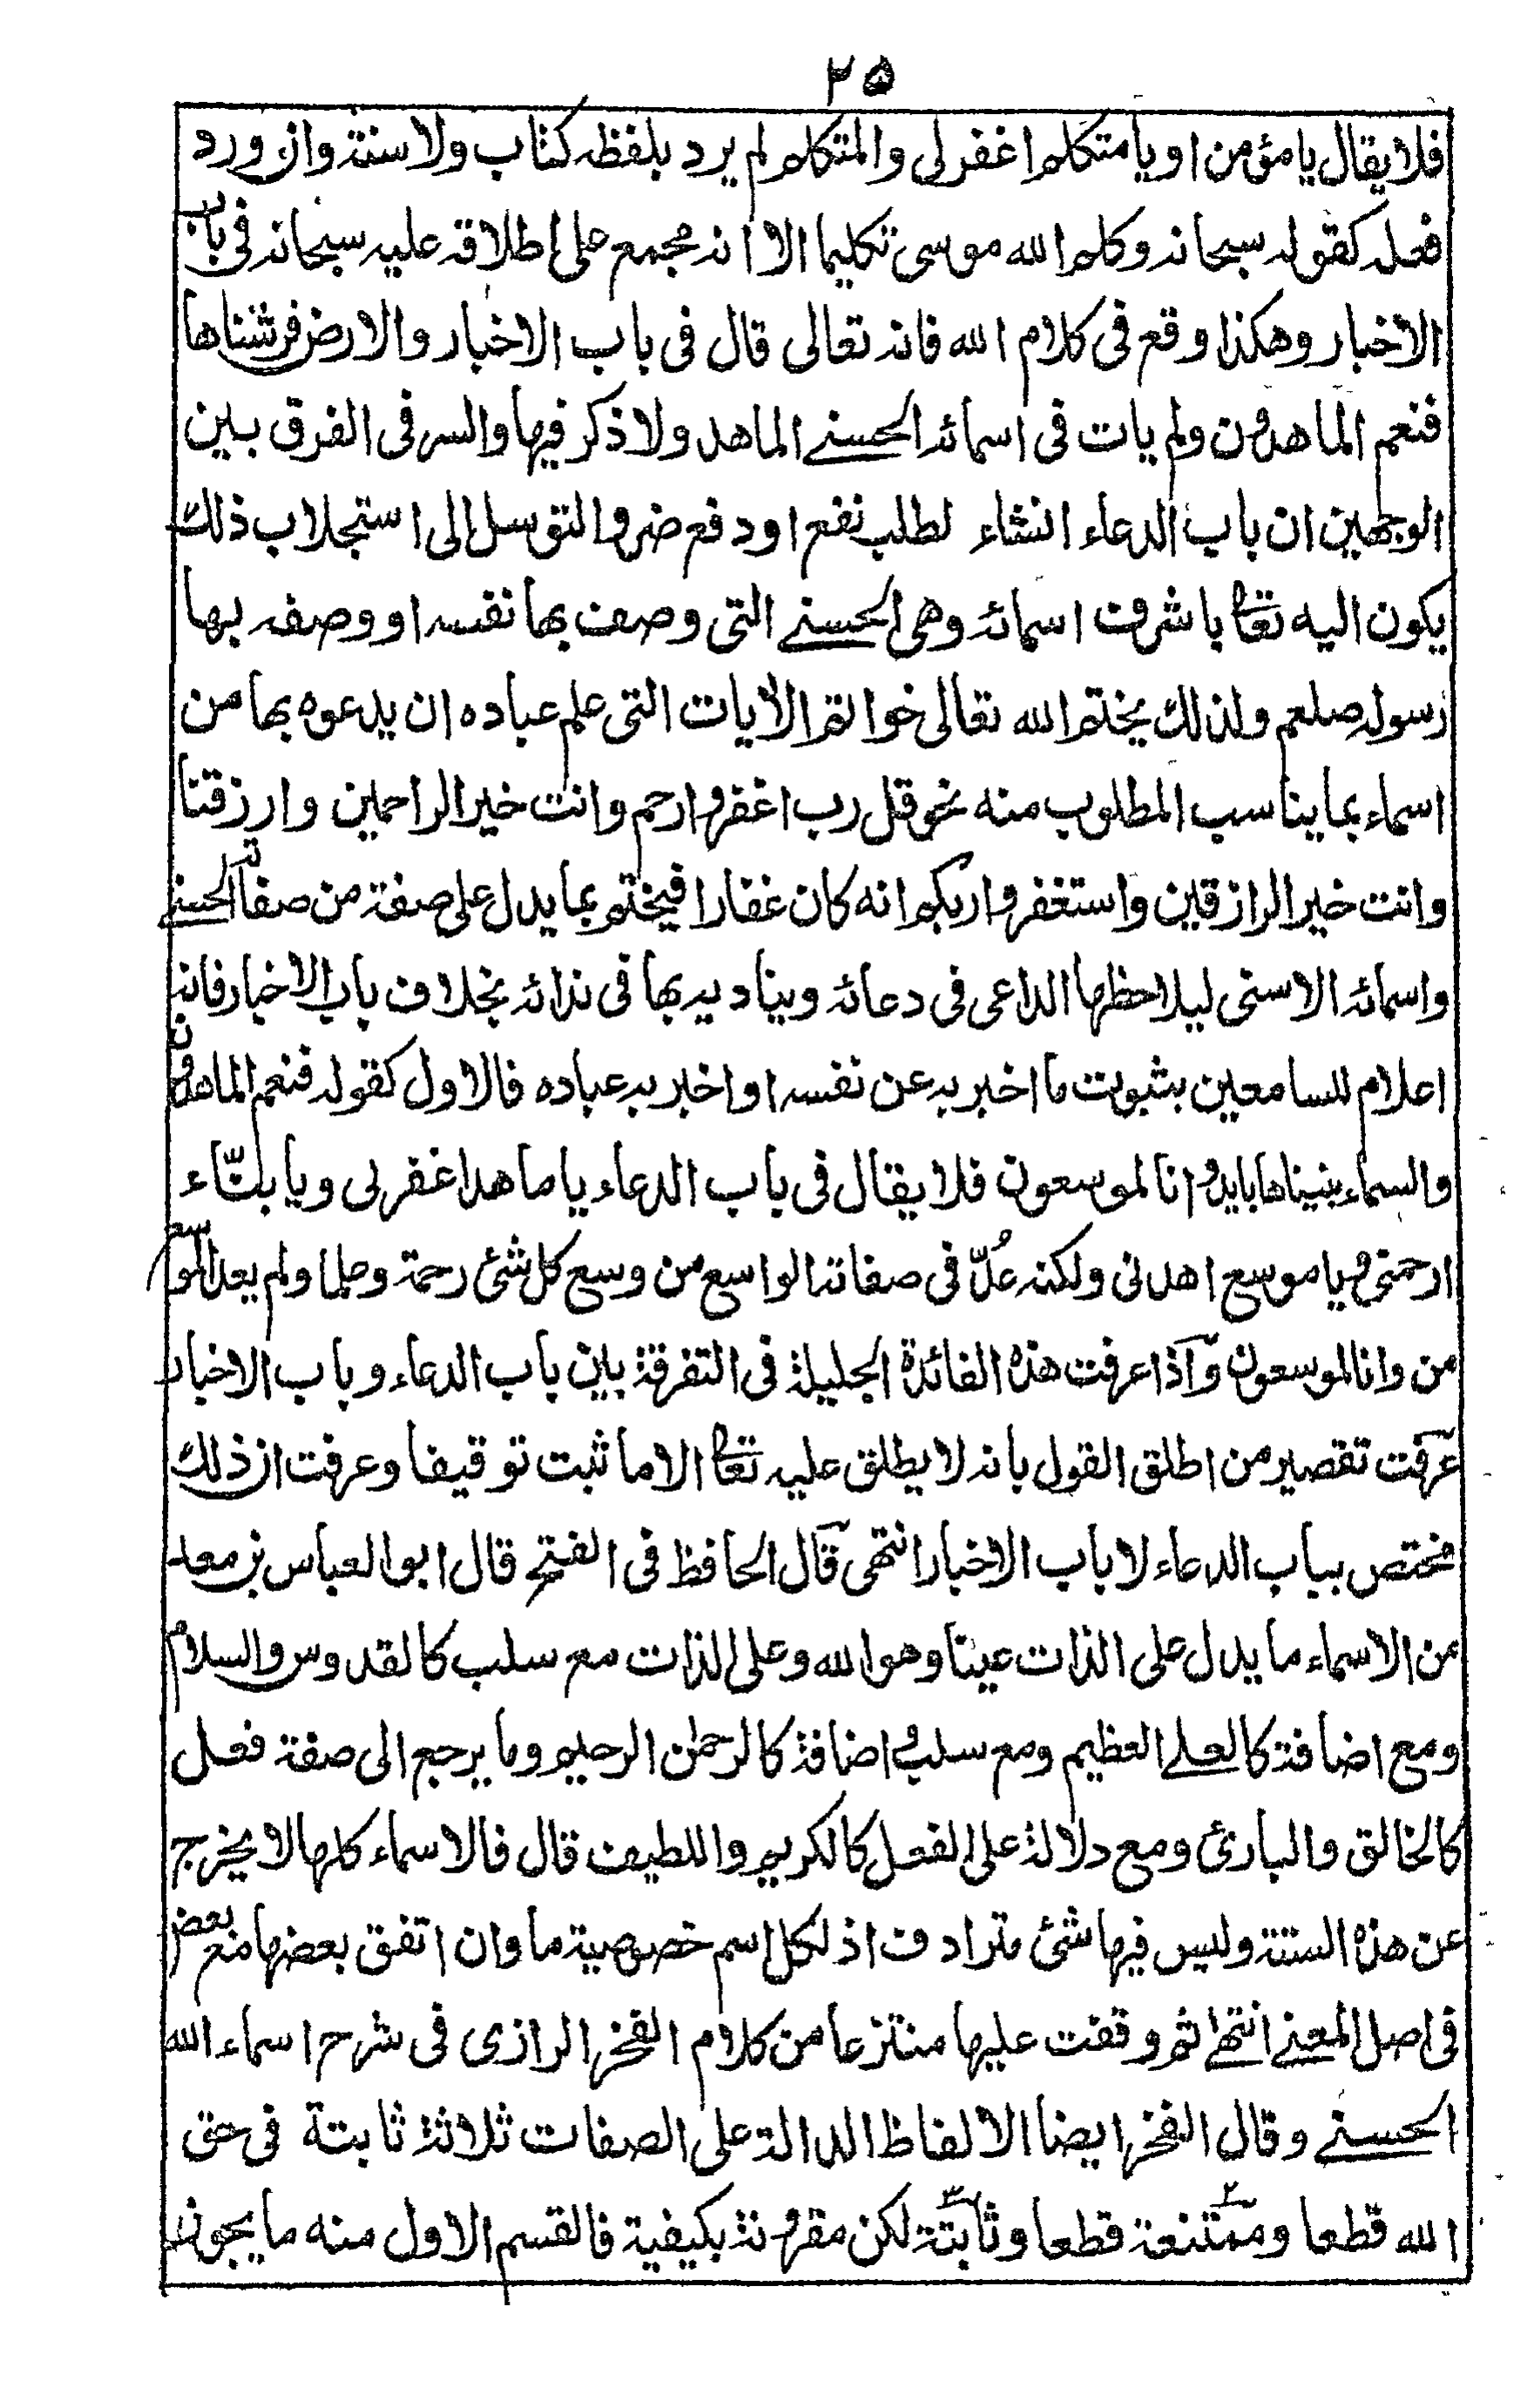 ٢٥
فلا يقال يا مؤمن او يا متكلم اغفر لى والمتكلم لم يرد بلفظه كتاب ولا سنة وان ورد
فعله كقوله سبحانه وكلم الله موسى تكليما الا انه مجمع على اطلاقه عليه سبحانه فى باب
الاخبار وهكذا وقع فى كلام الله فانه تعالى قال فى باب الاخبار والارض فرشناها
فنعم الماهدون ولم يات فى اسمائه الحسنے الماهد ولا ذكر فيها والسر فى الفرق بين
الوجهين ان باب الدعاء انشاء لطلب نفع او دفع ضر والتوسل الى استجلاب ذلك
يكون اليه تعا باشرف اسمائه وهى الحسنے التى وصف بها نفسه او وصفه بها
رسوله صلعم ولذلك يختم الله تعالى خواتم الأيات التى علم عباده ان يدعوه بها من
اسماء بما يناسب المطلوب منه نحو قل رب اغفر وارحم وانت خير الراحمين وارزقنا
وانت خير الرازقين واستغفروا ربكم انه كان غفارا فيختم بما يدل على صفة من صفاته الحسنے
واسمائه الاسنى ليلاحظها الداعى فى دعائه ويناديه بها فى ندائه بخلاف باب الاخبار فانه
اعلام للسامعين بثبوت ما اخبر به عن نفسه او اخبر به عباده فالاول كقوله فنعم الماهدون
والسماء بنيناها بايد وانا لموسعون فلا يقال فى باب الدعاء يا ماهد اغفر لى ويا بنّاء
ارحمنى ويا موسع اهدنى ولكنه عُدّ فى صفاته الواسع من وسع كل شئ رحمة وعلما ولم يعد الموسع
من وانا لموسعون وآذا عرفت هذه الفائدة الجليلة فى التفرقة بين باب الدعاء وباب الاخبار
عرفت تقصير من اطلق القول بانه لا يطلق عليه تعا الا ما ثبت توقيفا وعرفت ان ذلك
مختص بباب الدعاء لا باب الاخبار انتهى قال الحافظ فى الفتح قال ابو العباس بن معد
من الاسماء ما يدل على الذات عينا وهو الله وعلى الذات مع سلب كالقدوس والسلام
ومع اضافة كالعلے العظيم ومع سلب واضافة كالرحمن الرحيم وما يرجع الى صفة فعل
كالخالق والبارئ ومع دلالة على الفعل كالكريم واللطيف قال فالاسماء كلها لا يخرج
عن هذه الستة وليس فيها شئ مترادف اذ لكل اسم خصوصية ما وان اتفق بعضها مع بعض
فى اصل المعنے انتهے ثم وقفت عليها منتزعا من كلام الفخر الرازى فى شرح اسماء الله
الحسنے وقال الفخر ايضا الالفاظ الدالة على الصفات ثلاثة ثابتة فى حق
الله قطعا وممتنعة قطعا وثابتة لكن مقرونة بكيفية فالقسم الاول منه ما يجوز